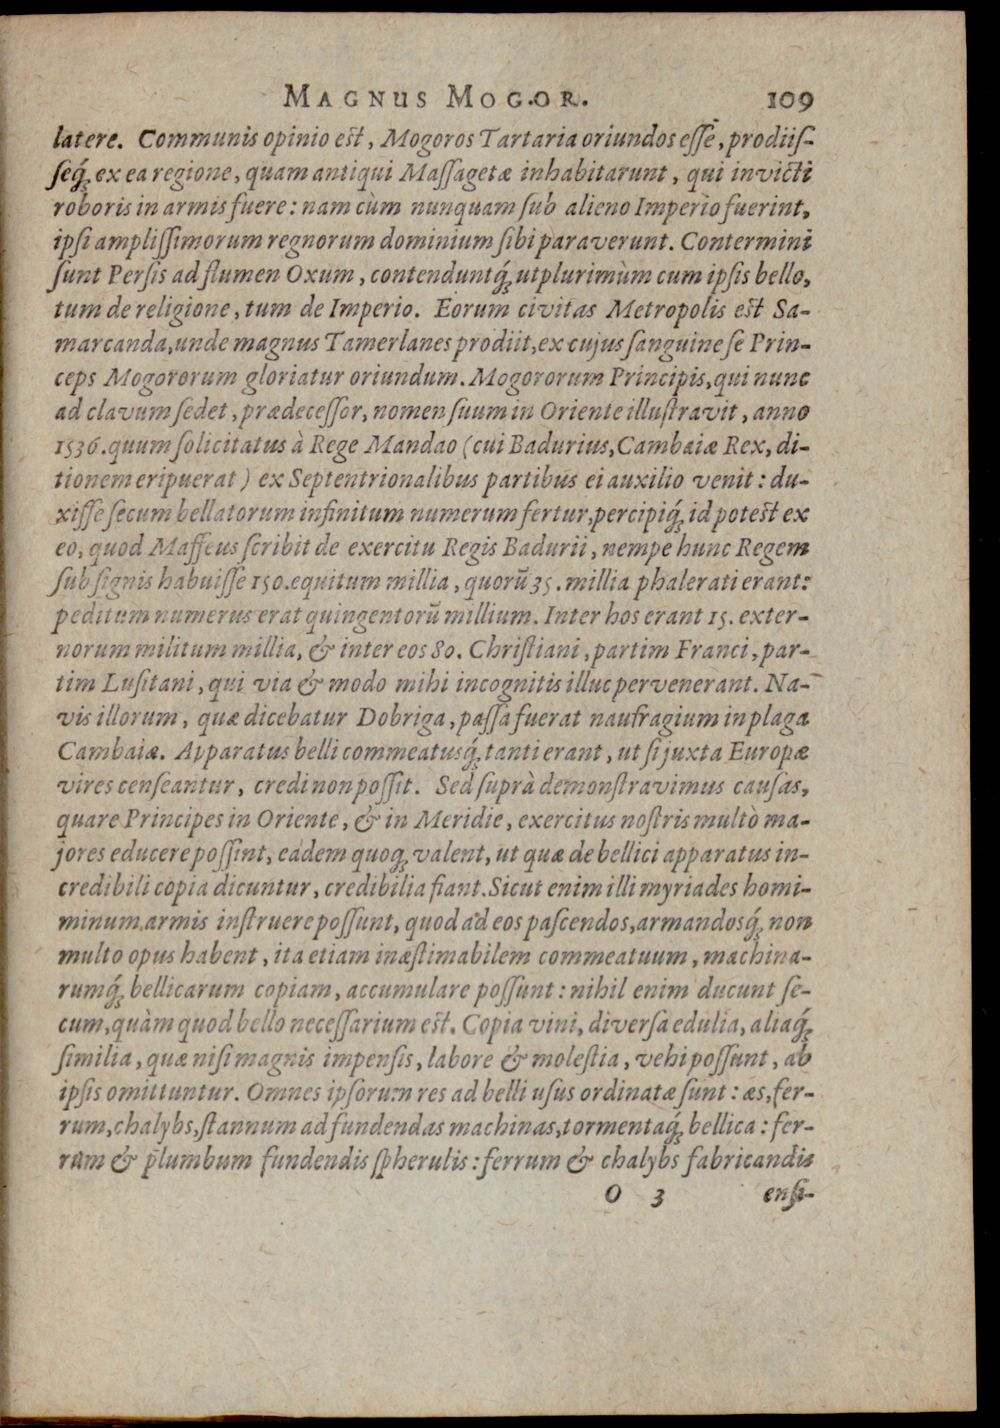 MAGNUS MOGOR. 109
latere. Communis opinio est, Mogoros Tartaria oriundos esse, prodiis-
seq́; ex ea regione, quam antiqui Massagetæ inhabitarunt, qui invicti
roboris in armis fuere: nam cùm nunquam sub alieno Imperio fuerint,
ipsi amplissimorum regnorum dominium sibi paraverunt. Contermini
sunt Persis ad flumen Oxum, contenduntq́; utplurimùm cum ipsis bello,
tum de religione, tum de Imperio. Eorum civitas Metropolis est Sa-
marcanda, unde magnus Tamerlanes prodiit, ex cujus sanguine se Prin-
ceps Mogororum gloriatur oriundum. Mogororum Principis, qui nunc
ad clavum sedet, prædecessor, nomen suum in Oriente illustravit, anno
1536. quum solicitatus à Rege Mandao (cui Badurius, Cambaiæ Rex, di-
tionem eripuerat) ex Septentrionalibus partibus ei auxilio venit: du-
xisse secum bellatorum infinitum numerum fertur, percipiq́; id potest ex
eo, quod Maffeus scribit de exercitu Regis Badurii, nempe hunc Regem
sub signis habuisse 150. equitum millia, quorū 35. millia phalerati erant:
peditum numerus erat quingentorū millium. Inter hos erant 15. exter-
norum militum millia, & inter eos 80. Christiani, partim Franci, par-
tim Lusitani, qui via & modo mihi incognitis illuc pervenerant. Na-
vis illorum, quæ dicebatur Dobriga, passa fuerat naufragium in plaga
Cambaiæ. Apparatus belli commeatusq́; tanti erant, ut si juxta Europæ
vires censeantur, credi non possit. Sed suprà demonstravimus causas,
quare Principes in Oriente, & in Meridie, exercitus nostris multò ma-
jores educere possint, eadem quoq; valent, ut quæ de bellici apparatus in-
credibili copia dicuntur, credibilia fiant. Sicut enim illi myriades homi-
minum armis instruere possunt, quod ad eos pascendos, armandosq́; non
multo opus habent, ita etiam inæstimabilem commeatuum, machina-
rumq́; bellicarum copiam, accumulare possunt: nihil enim ducunt se-
cum, quàm quod bello necessarium est. Copia vini, diversa edulia, aliaq́;
similia, quæ nisi magnis impensis, labore & molestia, vehi possunt, ab
ipsis omittuntur. Omnes ipsorum res ad belli usus ordinatæ sunt: æs, fer-
rum, chalybs, stannum ad fundendas machinas, tormentaq́; bellica: fer-
rum & plumbum fundendis spherulis: ferrum & chalybs fabricandis
O 3 ensi-